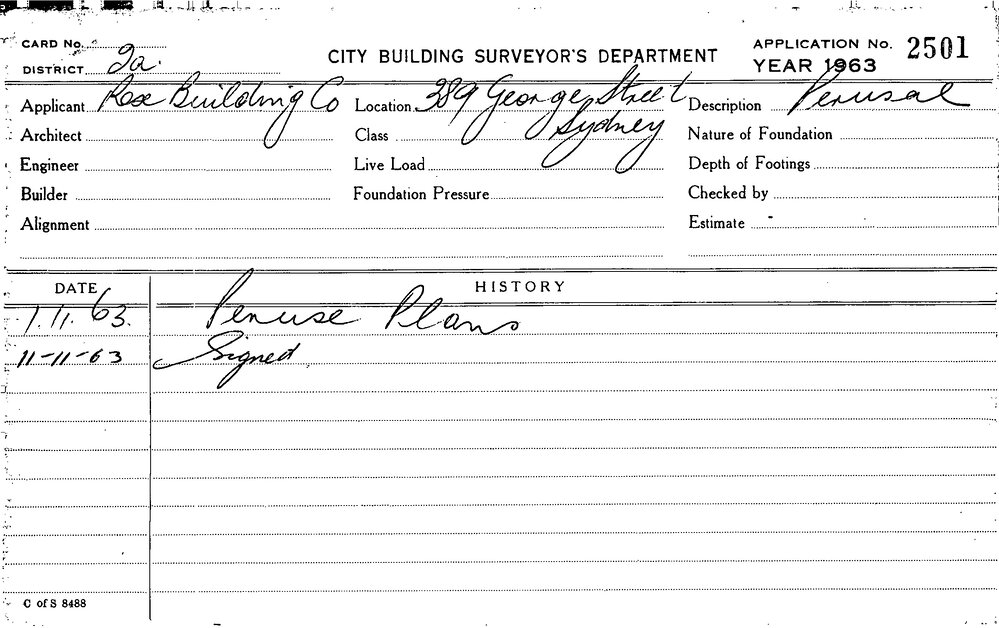 CARD No.
CITY BUILDING SURVEYOR'S DEPARTMENT
APPLICATION No. 2501
DISTRICT 2a.
YEAR 1963
Applicant Rose Building Co Location 389 George Street Description Perusal
Sydney
Architect Class Nature of Foundation
Engineer Live Load Depth of Footings
Builder Foundation Pressure Checked by
Alignment Estimate
DATE HISTORY
1.11.63. Peruse Plans
11-11-63 Signed
C of S 8488